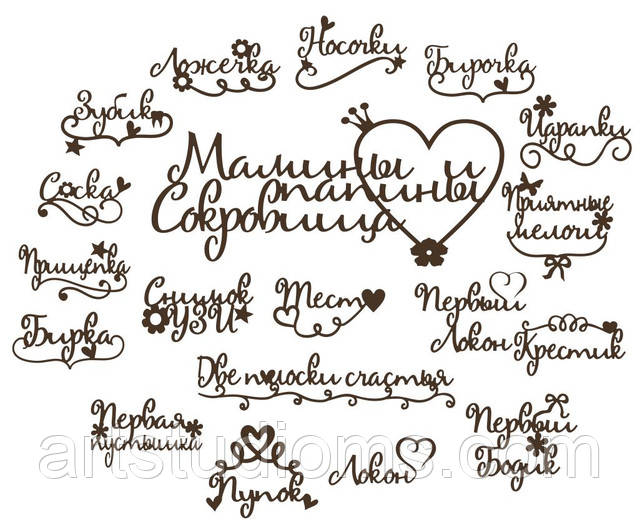 Носочки
Ложечка
Бирочка
Зубик
Царапки
Мамины и
папины
Сокровища
Соска
Приятные
мелочи
Прищепка
Снимок
УЗИ
Тест
Первый
Локон
Крестик
Бирка
Две полоски счастья
Первая
пустышка
Первый
Бодик
Пупок
Локон
artstudioms.com